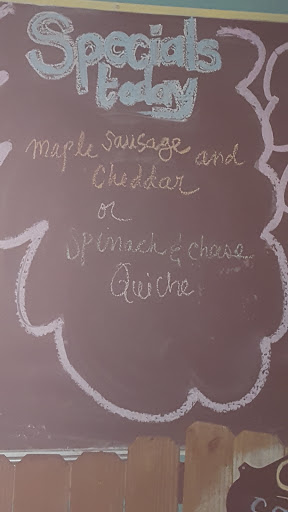 Specials
today
Maple Sausage and
Cheddar
or
Spinach & Cheese
Quiche